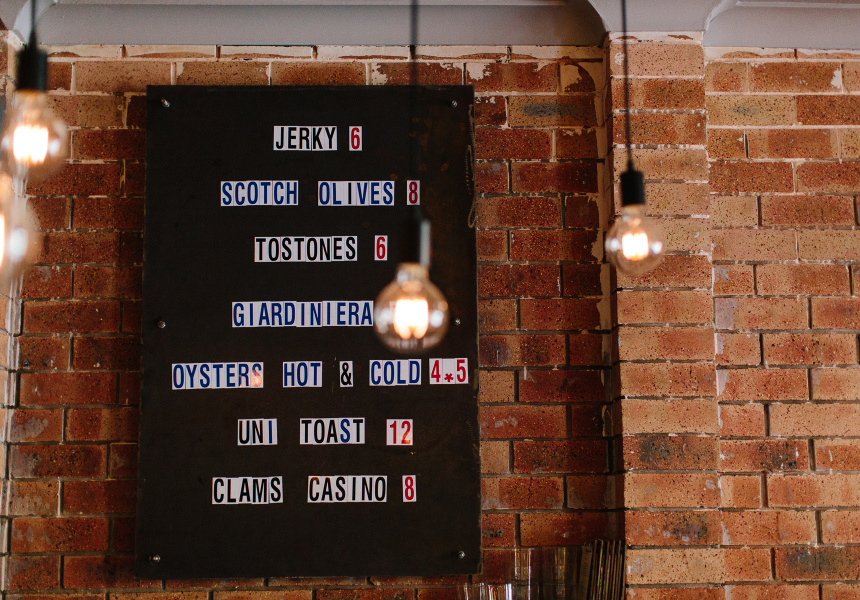 JERKY 6
SCOTCH OLIVES 8
TOSTONES 6
GIARDINIERA
OYSTERS HOT & COLD 4*5
UNI TOAST 12
CLAMS CASINO 8